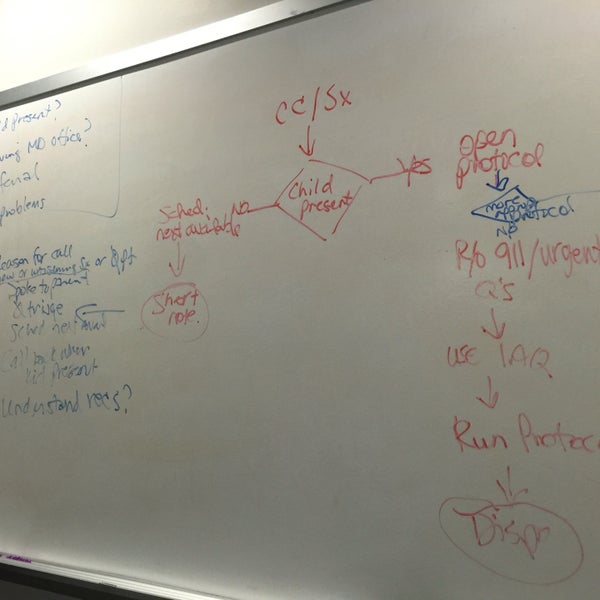 d present?
MD office?
problems
Reason for call
new or worsening Sx or
Spoke to parent
& triage
Sched next
Call back when
kid present
Understand recs?
CC/Sx
Child
present
No
Yes
Sched.
next available
Short
note.
Open
protocol
more
protocol
No
R/o 911/urgent
Q's
use IAQ
Run Protoc
Dispo